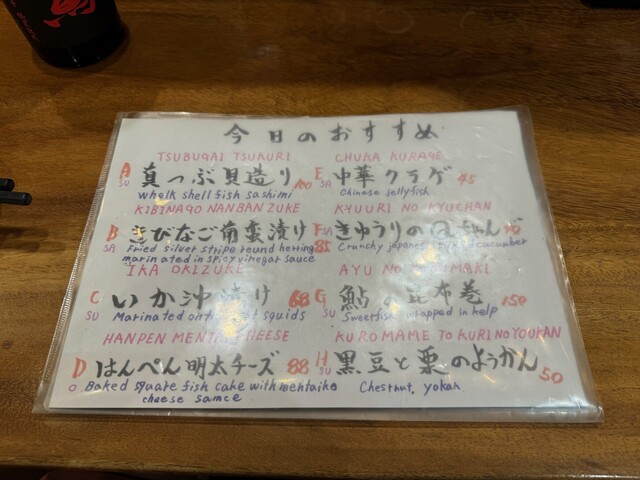 今日のおすすめ
TSUBUGAI TSUKURI
A SU 真つぶ貝造り
whelk shell fish sashimi
KIBINAGO NANBAN ZUKE
B SA きびなご南蛮漬け 85
Fried silver stripe round herring
marinated in spicy vinegar sauce
IKA OKIZUKE
C SU いか沖漬け 68
Marinated on squids
HANPEN MENTAI CHEESE
D O はんぺん明太チーズ 88
Baked square fish cake with mentaiko
cheese samce
CHUKA KURAGE
E SA 中華クラゲ 45
Chinese jellyfish
KYUURI NO KYUCHAN
F SA きゅうりのQちゃん
Crunchy japanese cucumber
AYU NO MAKI
G SU 鮎の昆布巻 150
Sweetfish wrapped in help
KUROMAME TO KURI NO YOUKAN
H SU 黒豆と栗のようかん 50
Chestnut, yokan